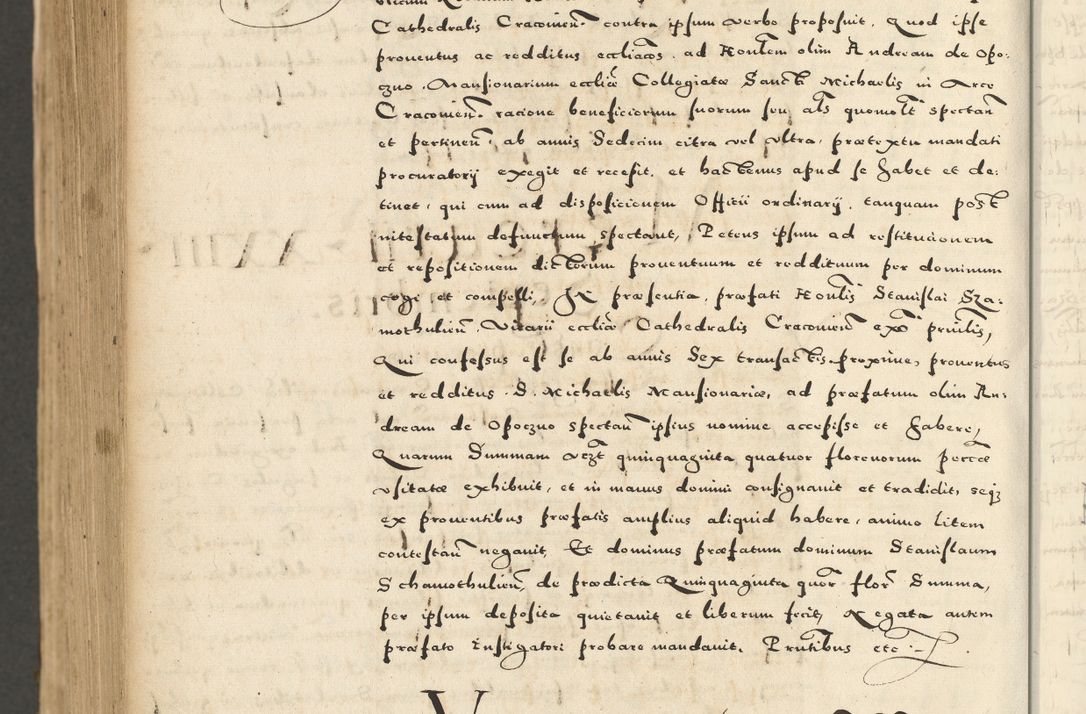 Cathedralis Cracovien. contra ipsum verbo proposuit. Quod ipse
proventus ac redditus eccliacos. ad Honlem olim Andream de Opo-
czno. Mansionarium ecclie Collegiatæ Sancti Michaelis in Arce
Cracovien. racione beneficiorum suorum seu als quomolt spectan
et pertinen. ab annis Sedecim citra vel ultra, prætextu mandati
procuratorij exegit et recepit. et hactenus apud se habet et de-
tinet, qui cum ad disposicionem Officii ordinarij. tanquam post
intestatum defunctum spectant, Petens ipsum ad restitucionem
et repositionem dictorum proventuum et reddituum per dominum
cogi et compelli, In præsentia, præfati Honlis Stanislai Sza-
mothulien. Vicarii ecclie Cathedralis Cracovien ex privilis,
Qui confessus est se ab annis Sex transactis proxime, proventus
et redditus. S. Michaelis Mansionariæ, ad præfatum olim An-
dream de Opoczno spectan ipsius nomine accepisse et habere,
Quarum Summam vezt quinquaginta quatuor florenorum peccæ
usitatæ exhibuit, et in manus domini consignavit et tradidit, seqz
ex proventibus præfatis amplius aliquid habere, animo litem
contestan negavit, Et dominus præfatum dominum Stanislaum
Schamothulien, de prædicta Quinquaginta quor flor Summa,
per ipsum deposita quietavit et liberum fecit, Negata autem
præfato Instigatori probare mandavit. Pruntibus etc